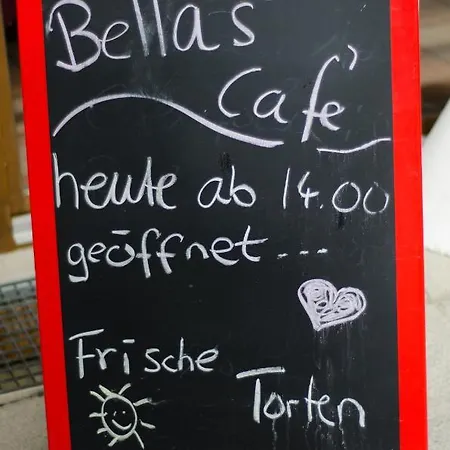 Bellas
Café
heute ab 14.00
geöffnet...
Frische
Torten